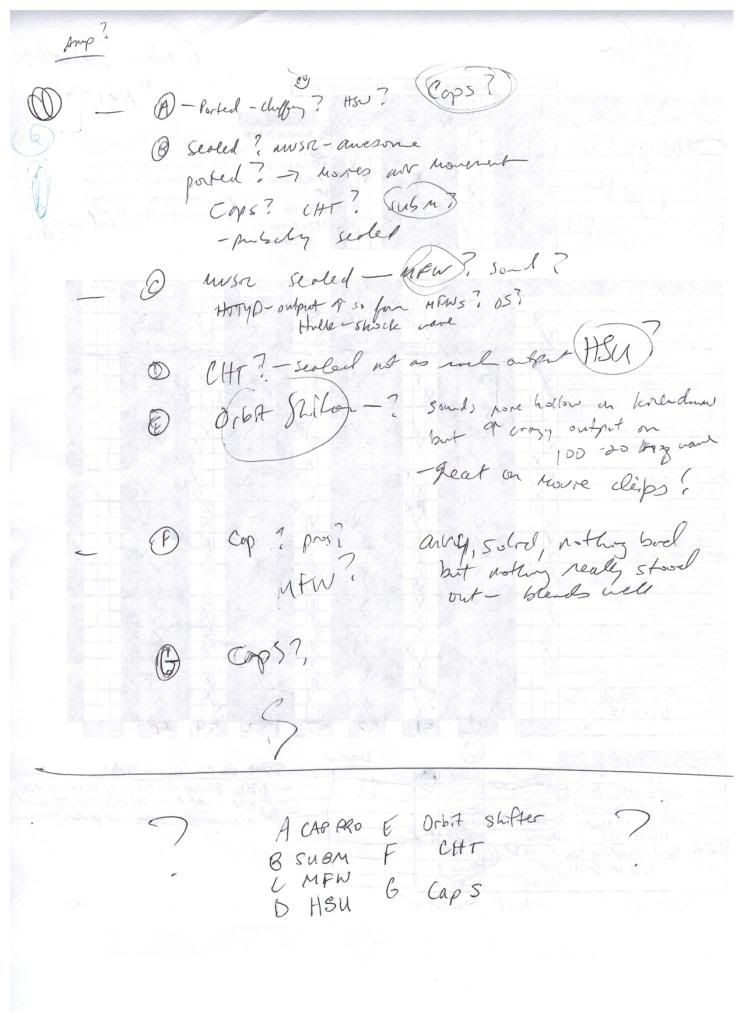 Amp?
A - Ported - chuffing? HSU? Caps?
B sealed? music - awesome
ported? → movies air movement
Caps? CHT? Subm?
- probably sealed
C music sealed — MFW? sound?
HTTYD - output ↑ so far MFWs? OS?
Hulk - shock wave
D CHT? - sealed not as much output HSU?
E Orbit Shifter - ? sounds more hollow on
but ↑ crazy output on
100 - 20 Hz wave
- great on movie clips!
F Cap? pros? solid, nothing bad
MFW? but nothing really stood
out - blends well
G CapS?
S
? A CAP PRO E Orbit Shifter ?
B SUBM F CHT
C MFW G Cap S
D HSU